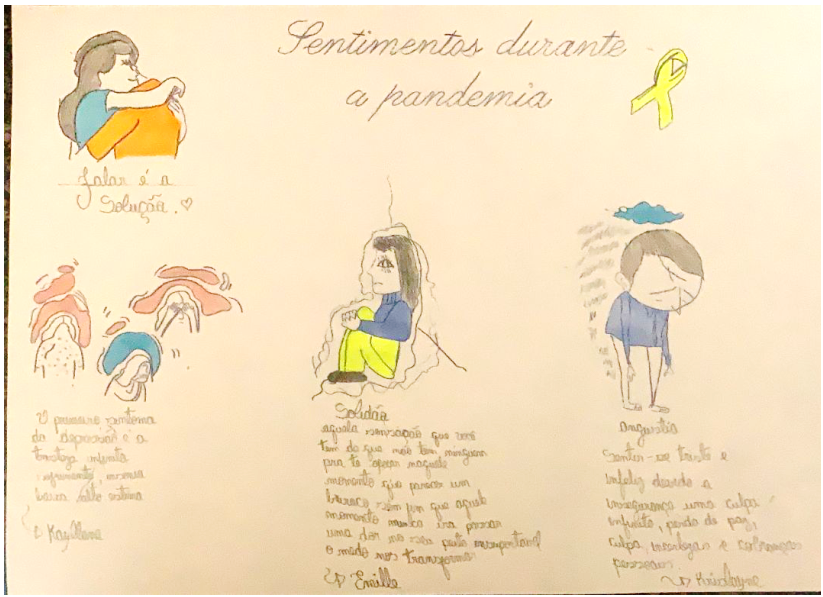 Sentimentos durante
a pandemia
Falar é a
Solução.
O primeiro sintoma
da depressão é a
tristeza infinita
baixa alto estima
Kayllane
Solidão
aquela sensação que você
tem de que não tem ninguém
pra te naquele
momento que parece um
buraco sem fim que aquele
momento nunca ira passar
uma dor no seu peito insuportável
o medo nos transforma
Eneille
angustia
Sentir-se triste e
infeliz devido a
insegurança uma culpa
infinita, perda da paz,
culpa, incertezas e cobranças
pessoais.